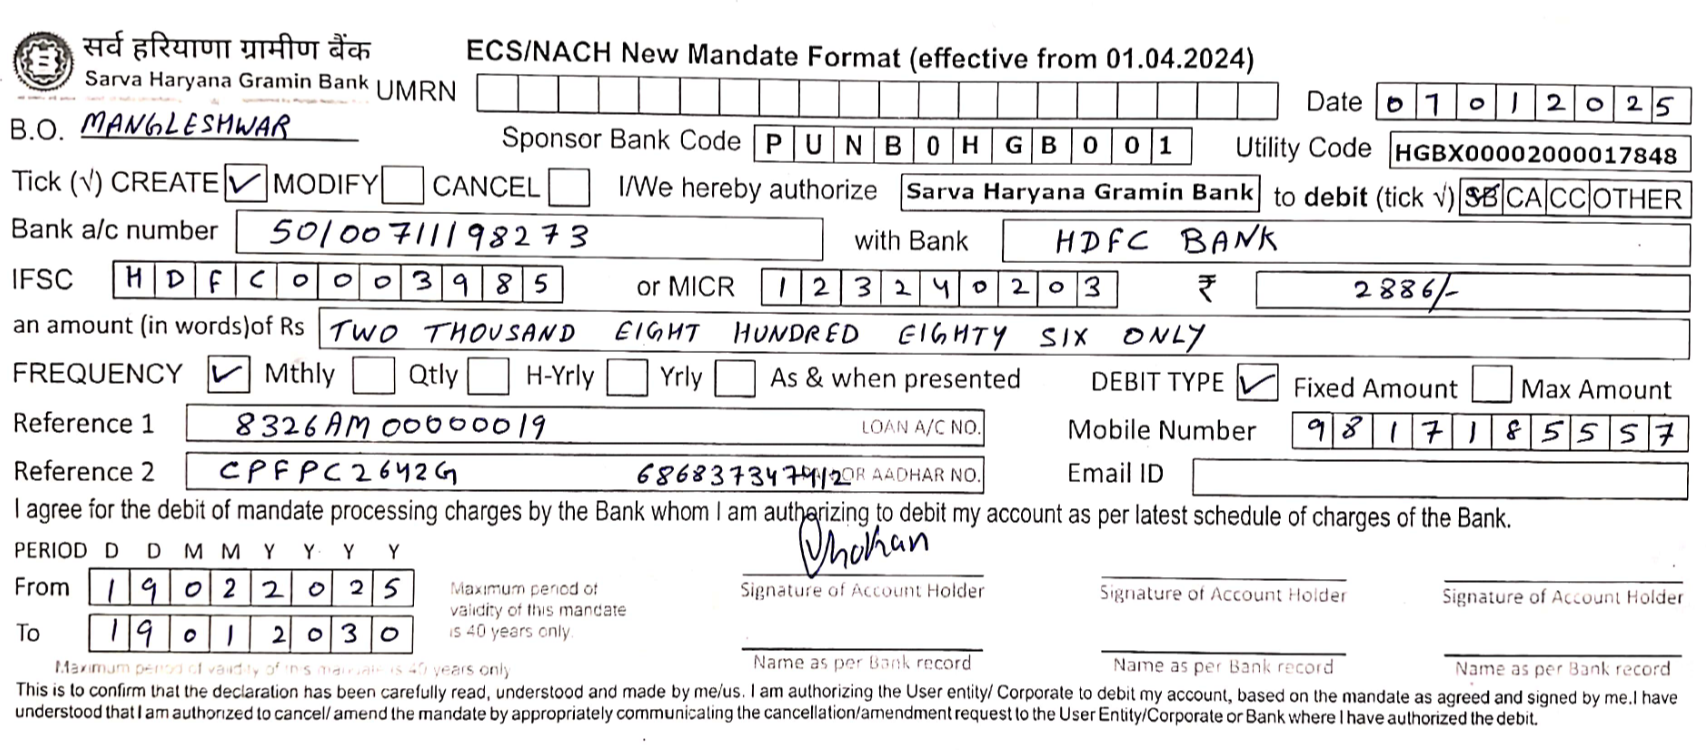 सर्व हरियाणा ग्रामीण बैंक
Sarva Haryana Gramin Bank
ECS/NACH New Mandate Format (effective from 01.04.2024)
UMRN
Date 07012025
B.O. MANGLESHWAR
Sponsor Bank Code PUNB0HGB001
Utility Code HGBX00002000017848
Tick (√) CREATE ✓ MODIFY CANCEL I/We hereby authorize Sarva Haryana Gramin Bank to debit (tick √) SB CA CC OTHER
Bank a/c number 50100711198273 with Bank HDFC BANK
IFSC HDFC0003985 or MICR 123240203 ₹ 2886/-
an amount (in words)of Rs TWO THOUSAND EIGHT HUNDRED EIGHTY SIX ONLY
FREQUENCY ✓ Mthly Qtly H-Yrly Yrly As & when presented DEBIT TYPE ✓ Fixed Amount Max Amount
Reference 1 8326AM00000019 LOAN A/C NO. Mobile Number 9817185557
Reference 2 CPFPC2642G OR AADHAR NO. Email ID
I agree for the debit of mandate processing charges by the Bank whom I am authorizing to debit my account as per latest schedule of charges of the Bank.
PERIOD D D M M Y Y Y Y
From 19022025
To 19012030
Maximum period of
validity of this mandate
is 40 years only.
Signature of Account Holder Signature of Account Holder Signature of Account Holder
Name as per Bank record Name as per Bank record Name as per Bank record
Maximum period of validity of this mandate is 40 years only
This is to confirm that the declaration has been carefully read, understood and made by me/us. I am authorizing the User entity/ Corporate to debit my account, based on the mandate as agreed and signed by me.I have
understood that I am authorized to cancel/ amend the mandate by appropriately communicating the cancellation/amendment request to the User Entity/Corporate or Bank where I have authorized the debit.